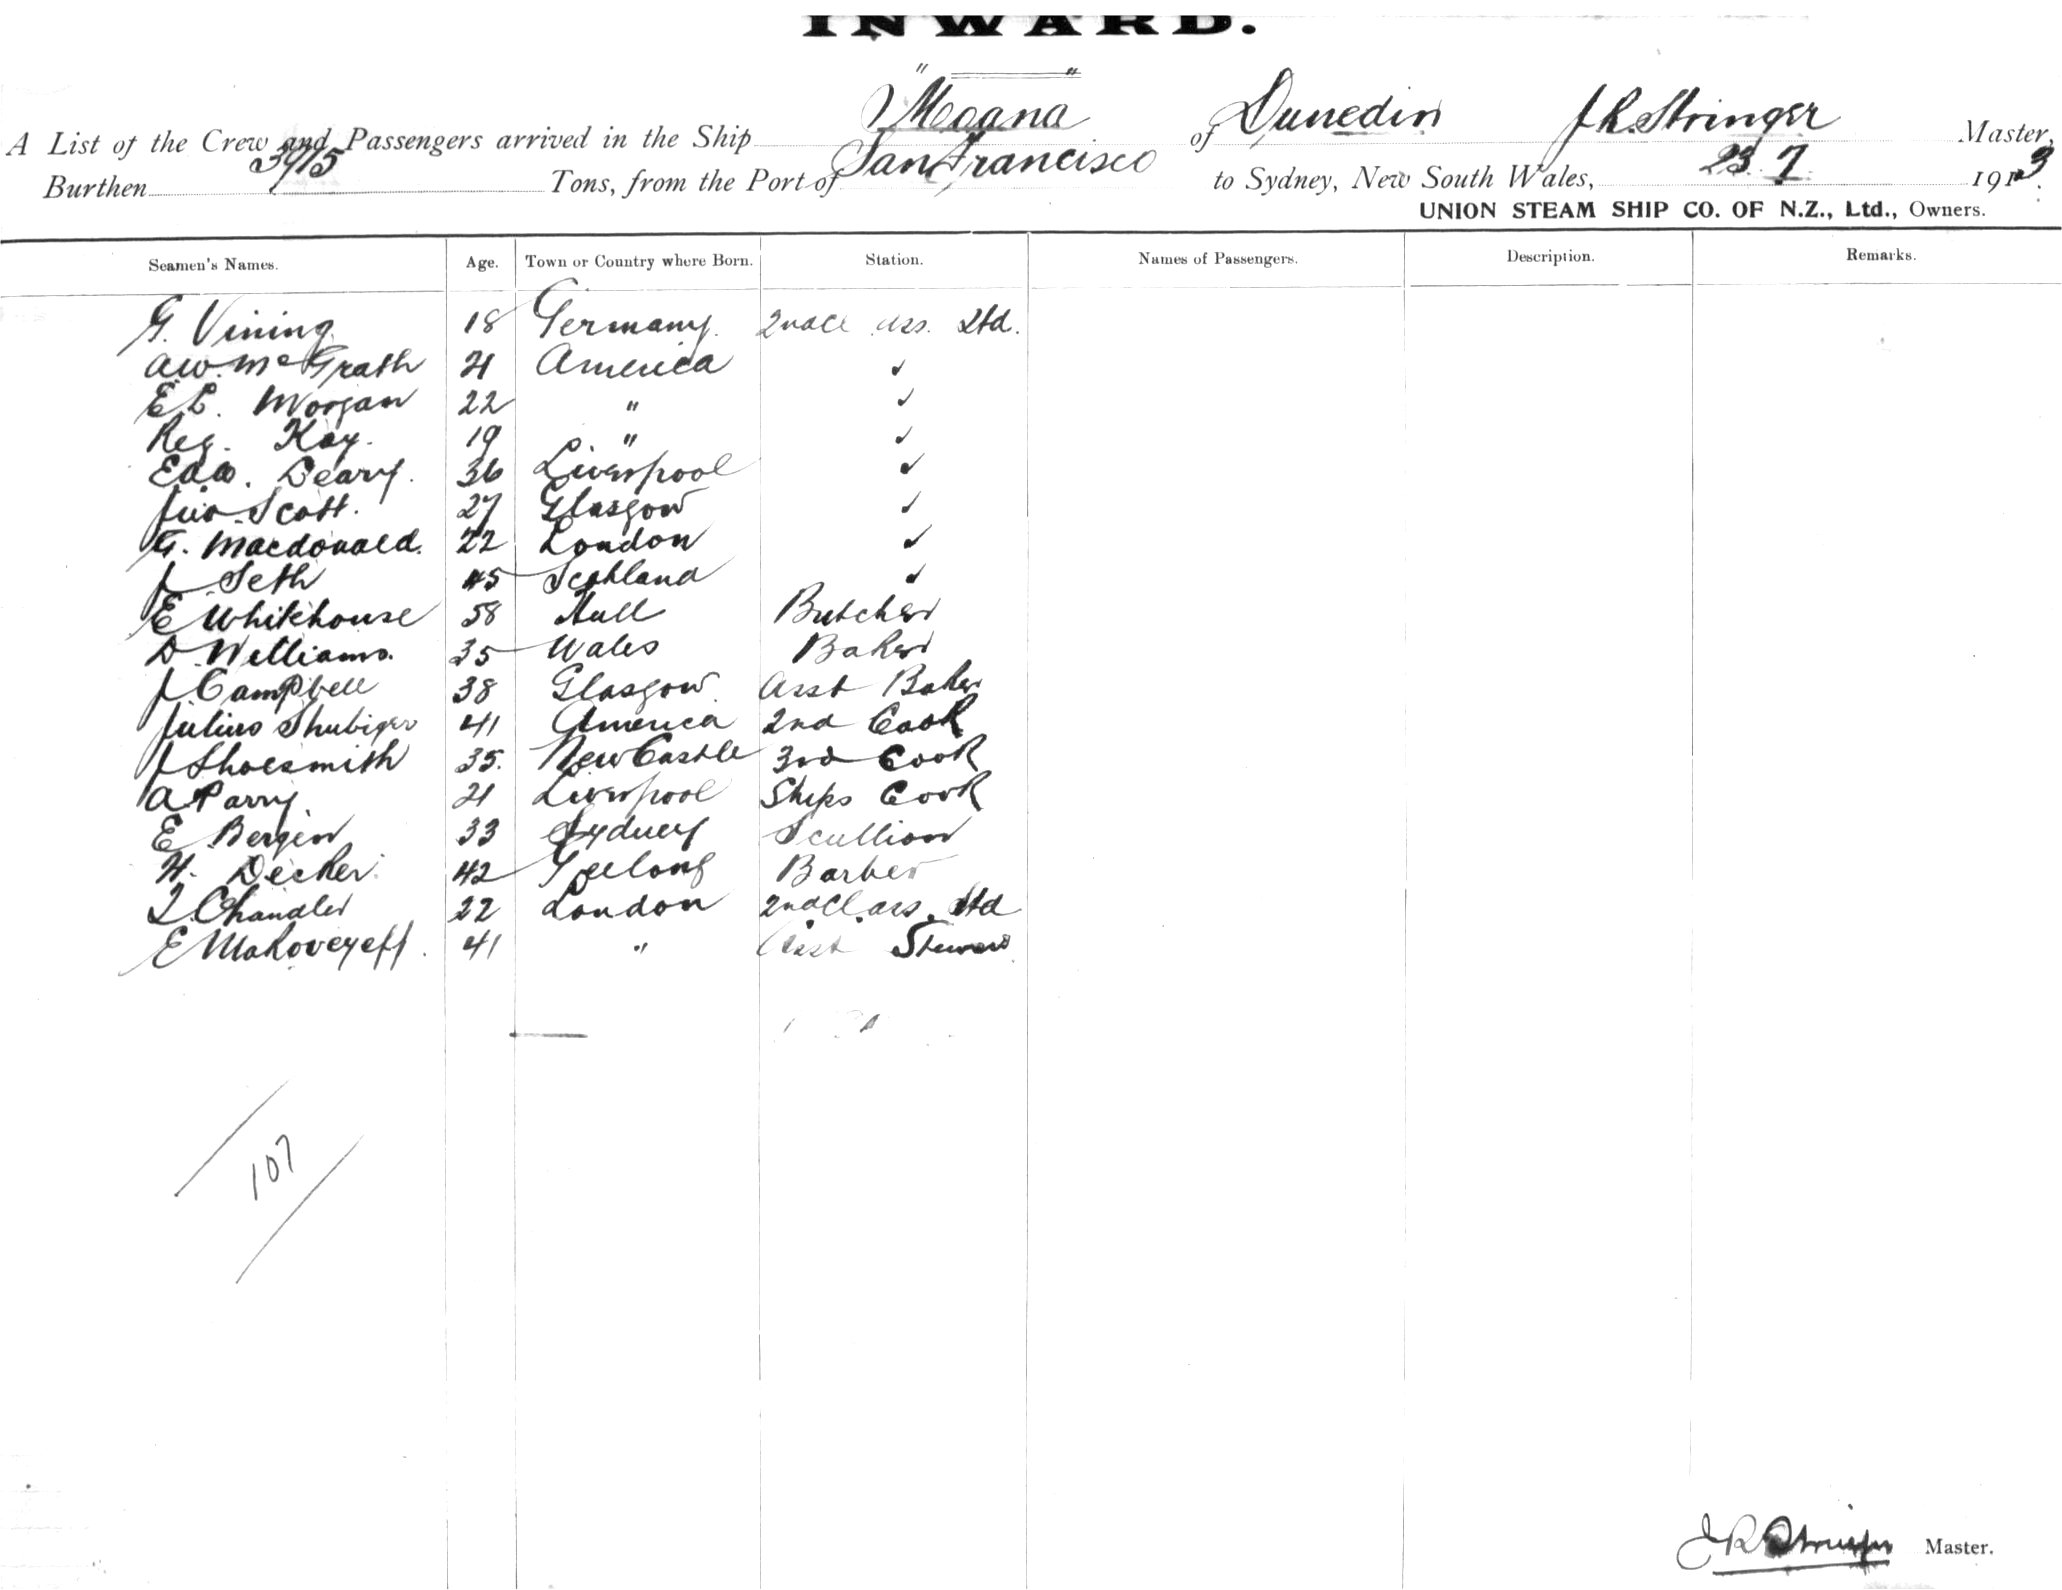 INWARD.
A List of the Crew and Passengers arrived in the Ship "Moana" of Dunedin J. R. Stringer Master,
Burthen 3915 Tons, from the Port of San Francisco to Sydney, New South Wales, 23. 7 1913
UNION STEAM SHIP CO. OF N.Z., Ltd., Owners.
Seamen's Names. Age. Town or Country where Born. Station. Names of Passengers. Description. Remarks.
G. Vining. 18 Germany. 2nd Std.
A.W. McGrath 21 America ✓
E L. Morgan 22 " ✓
Reg. Kay. 19 " ✓
Edw. Deary. 36 Liverpool ✓
Jno. Scott. 27 Glasgow ✓
G. Macdonald. 22 London ✓
J Seth 45 Scotland ✓
E Whitehouse 58 Hull Butcher
D. Williams. 35 Wales Baker
J Campbell 38 Glasgow Asst Baker
Julius Shubiger 41 America 2nd Cook
J Shoesmith 35. NewCastle 3rd Cook
A Parry. 21 Liverpool Ships Cook
E Bergin 33 Sydney Scullion
H. Decker. 42 Geelong Barber
Chandler 22 London 2nd Class. Std
E Makoveyeff. 41 " Asst Steward
107
J R Stringer Master.